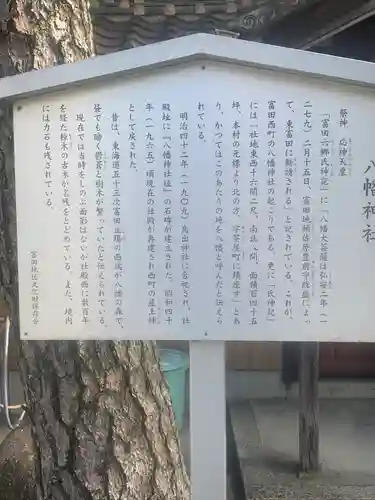 八幡神社
祭神　応神天皇
「富田六郷氏神記」に「八幡大菩薩は弘安二年（一
二七九）二月十五日、富田地頭佐原豊前守政盛によっ
て、東富田に勧請される」と記されている。これが、
富田西町の八幡神社の起こりである。更に「氏神記」
には「社地東西十六間二尺、南北八間、面積百四十五
坪、本村の元標より北の方、字茶屋町に鎮座す」とあ
り、かつてはこのあたりの地を八幡と呼んだと伝えら
れている。
明治四十二年（一九〇九）鳥出神社に合祀され、社
殿址に「八幡神社址」の石碑が建立された。昭和四十
年（一九六五）頃現在の社殿が再建され西町の産土神
として戻された。
昔は、東海道五十三次富田立場の西端の八幡の森で、
昼でも暗く鬱蒼と樹木が繁っていたと伝えられている。
現在では当時をしのぶ面影はないが社殿西に数百年
を経た椋木の古木が名残をとどめている。また、境内
には力石も残されている。
富田地区文化財保存会